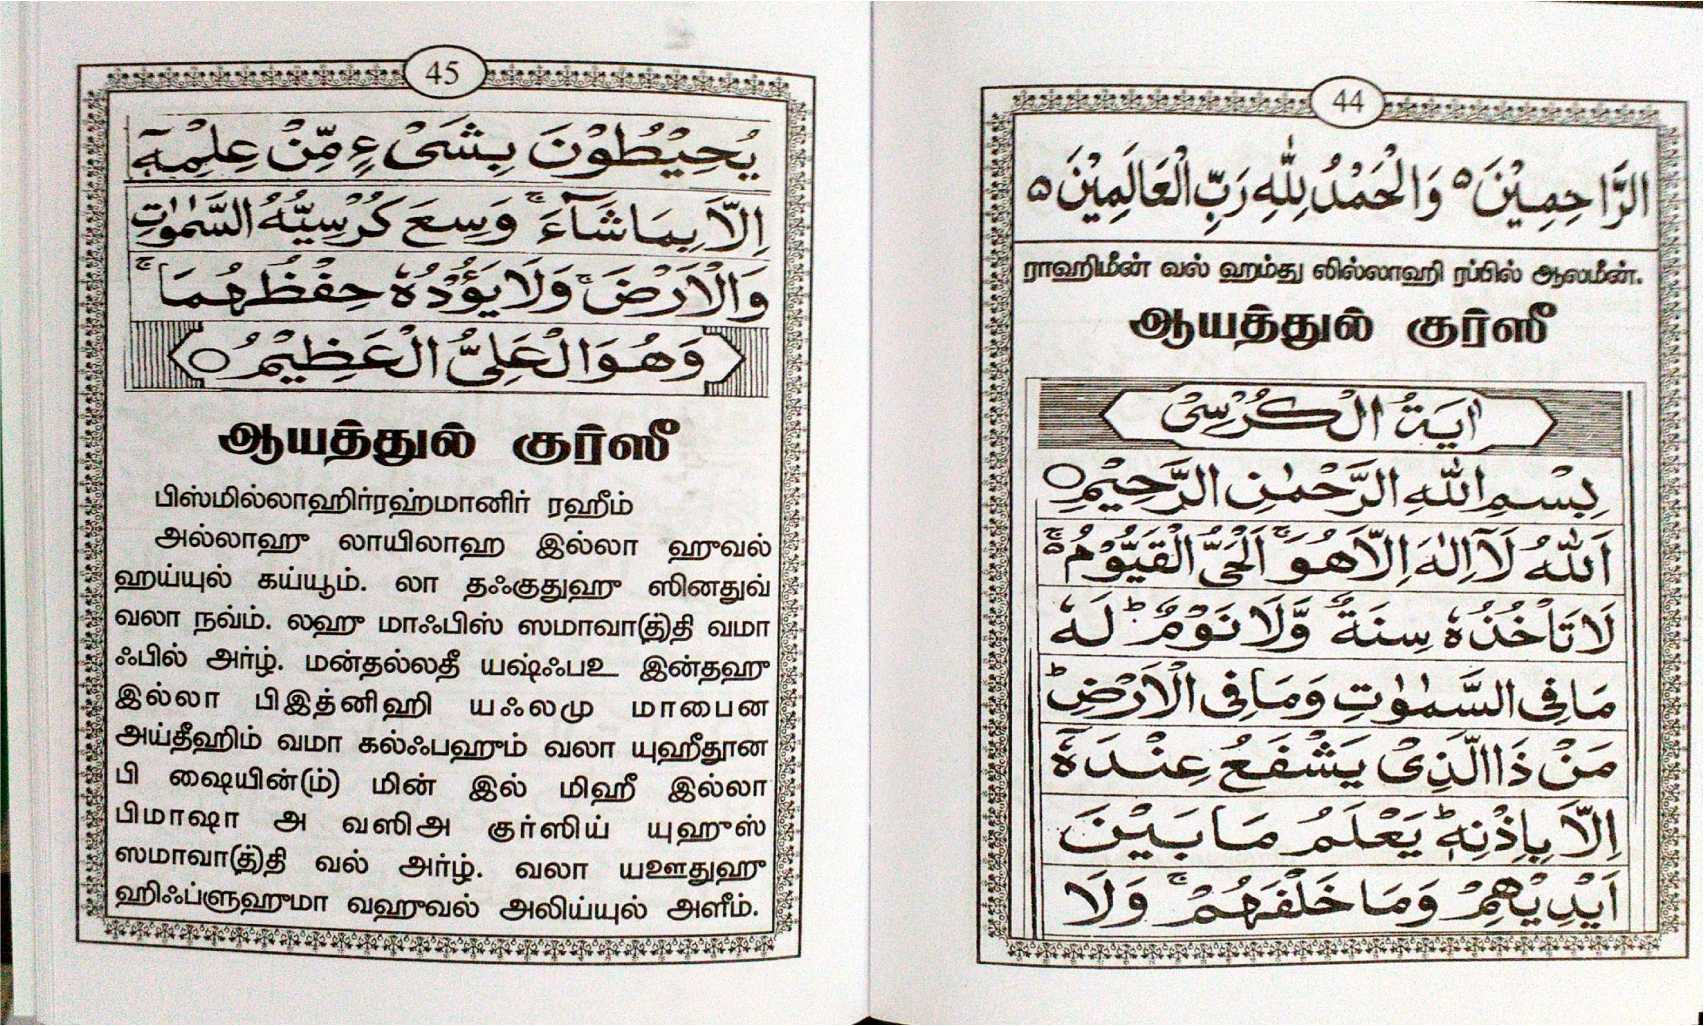 44
الرَّاحِمِيْنَ ٥ وَالْحَمْدُ لِلّٰهِ رَبِّ الْعَالَمِيْنَ ٥
ராஹிமீன் வல் ஹம்து லில்லாஹி ரப்பில் ஆலமீன்.
ஆயத்துல் குர்ஸீ
اٰيَةُ الْكُرْسِىْ
بِسْمِ اللّٰهِ الرَّحْمٰنِ الرَّحِيْمِ ○
اَللّٰهُ لَآ اِلٰهَ اِلَّا هُوَ ۚ اَلْحَىُّ الْقَيُّوْمُ ۚ
لَا تَاْخُذُهٗ سِنَةٌ وَّلَا نَوْمٌ ؕ لَهٗ
مَا فِى السَّمٰوٰتِ وَمَا فِى الْاَرْضِ ؕ
مَنْ ذَا الَّذِىْ يَشْفَعُ عِنْدَهٗٓ
اِلَّا بِاِذْنِهٖ ؕ يَعْلَمُ مَا بَيْنَ
اَيْدِيْهِمْ وَمَا خَلْفَهُمْ ۚ وَلَا
45
يُحِيْطُوْنَ بِشَىْءٍ مِّنْ عِلْمِهٖٓ
اِلَّا بِمَا شَآءَ ۚ وَسِعَ كُرْسِيُّهُ السَّمٰوٰتِ
وَالْاَرْضَ ۚ وَلَا يَؤُدُهٗ حِفْظُهُمَا ۚ
وَهُوَ الْعَلِىُّ الْعَظِيْمُ ○
ஆயத்துல் குர்ஸீ
பிஸ்மில்லாஹிர்ரஹ்மானிர் ரஹீம்
அல்லாஹு லாயிலாஹ இல்லா ஹுவல்
ஹய்யுல் கய்யூம். லா தஃகுதுஹு ஸினதுவ்
வலா நவ்ம். லஹு மாஃபிஸ் ஸமாவா(த்)தி வமா
ஃபில் அர்ழ். மன்தல்லதீ யஷ்ஃபஉ இன்தஹு
இல்லா பிஇத்னிஹி யஃலமு மாபைன
அய்தீஹிம் வமா கல்ஃபஹும் வலா யுஹீதூன
பி ஷையின்(ம்) மின் இல் மிஹீ இல்லா
பிமாஷா அ வஸிஅ குர்ஸிய் யுஹுஸ்
ஸமாவா(த்)தி வல் அர்ழ். வலா யஊதுஹு
ஹிஃப்ளுஹுமா வஹுவல் அலிய்யுல் அளீம்.